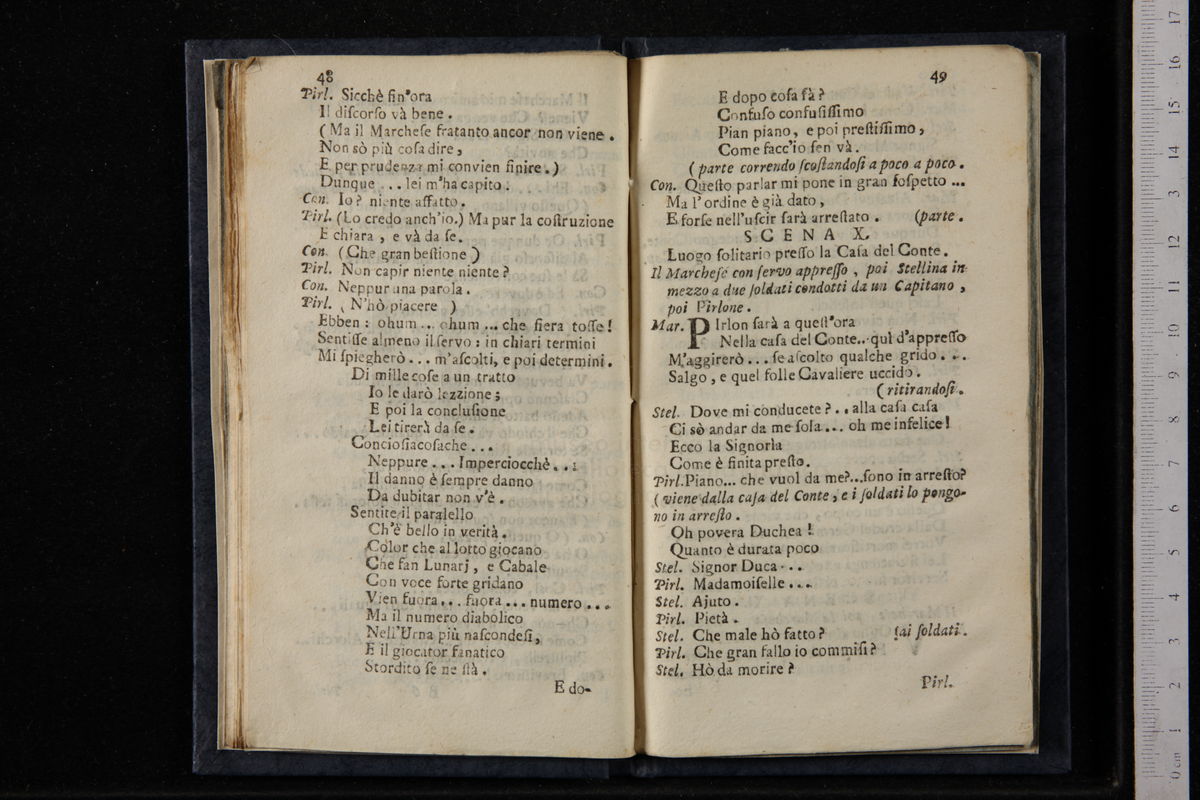 48
Pirl. Sicchè fin'ora
Il diſcorſo và bene.
(Ma il Marcheſe fratanto ancor non viene.
Non sò più coſa dire,
E per prudenza mi convien finire.)
Dunque ... lei m'ha capito:
Con. Io? niente affatto.
Pirl. (Lo credo anch'io.) Ma pur la coſtruzione
E chiara, e và da ſe.
Con. (Che gran beſtione)
Pirl. Non capir niente niente?
Con. Neppur una parola.
Pirl. (N'hò piacere )
Ebben: ohum... ohum... che fiera toſſe!
Sentiſſe almeno il ſervo: in chiari termini
Mi ſpiegherò... m'aſcolti, e poi determini.
Di mille coſe a un tratto
Io le darò lezzione;
E poi la concluſione
Lei tirerà da ſe.
Concioſiacoſache...
Neppure... Imperciocchè...:
Il danno è ſempre danno
Da dubitar non v'è.
Sentite il paralello
Ch'è bello in verità.
Color che al lotto giocano
Che fan Lunarj, e Cabale
Con voce forte gridano
Vien fuora... fuora... numero...
Ma il numero diabolico
Nell'Urna più naſcondeſi,
E il giocator fanatico
Stordito ſe ne ſtà.
E do-
49
E dopo coſa fà?
Confuſo confuſiſſimo
Pian piano, e poi preſtiſſimo,
Come facc'io ſen và.
(parte correndo ſcoſtandoſi a poco a poco.
Con. Queſto parlar mi pone in gran ſoſpetto...
Ma l'ordine è già dato,
E forſe nell'uſcir ſarà arreſtato. (parte.
SCENA X.
Luogo ſolitario preſſo la Caſa del Conte.
Il Marcheſe con ſervo appreſſo, poi Stellina in
mezzo a due ſoldati condotti da un Capitano,
poi Pirlone.
Mar. PIrlon ſarà a queſt'ora
Nella caſa del Conte.. quì d'appreſſo
M'aggirerò... ſe aſcolto qualche grido...
Salgo, e quel folle Cavaliere uccido.
(ritirandoſi.
Stel. Dove mi conducete?.. alla caſa caſa
Ci sò andar da me ſola... oh me infelice!
Ecco la Signorìa
Come è finita preſto.
Pirl. Piano... che vuol da me?...ſono in arreſto?
(viene dalla caſa del Conte, e i ſoldati lo pongo-
no in arreſto.
Oh povera Duchea!
Quanto è durata poco
Stel. Signor Duca...
Pirl. Madamoiſelle...
Stel. Ajuto.
Pirl. Pietà.
Stel. Che male hò fatto? (ai ſoldati.
Pirl. Che gran fallo io commiſi?
Stel. Hò da morire?
Pirl.
0 cm 1 2 3 4 5 6 7 8 9 10 11 12 13 14 15 16 17